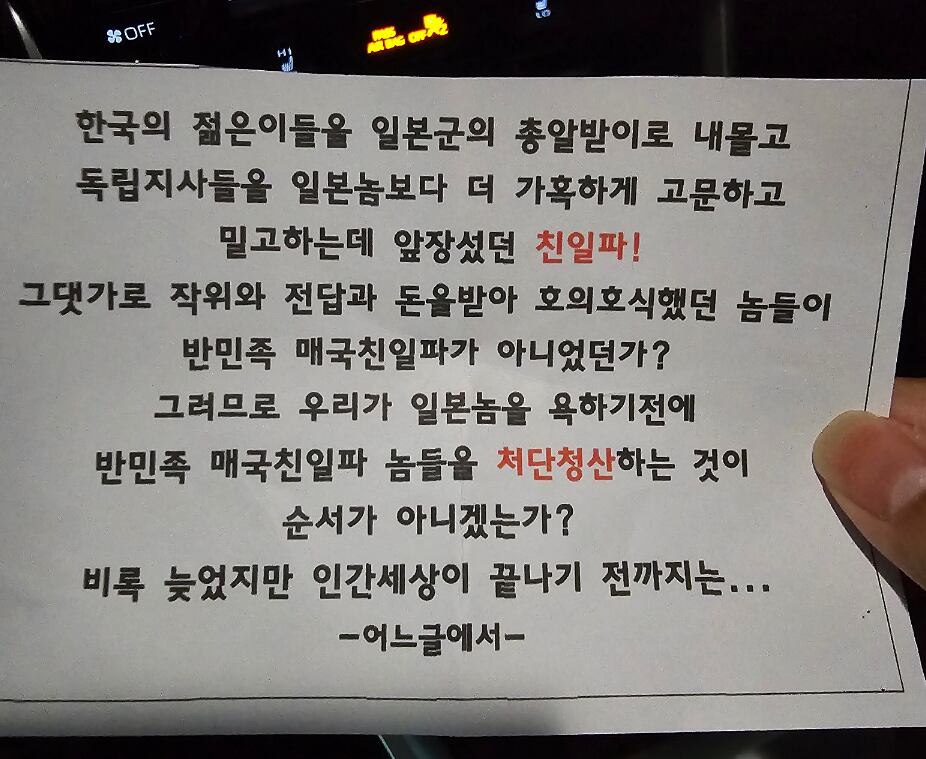 OFF
HI
PASS
AIR BAG OFF
LO
한국의 젊은이들을 일본군의 총알받이로 내몰고
독립지사들을 일본놈보다 더 가혹하게 고문하고
밀고하는데 앞장섰던 친일파!
그댓가로 작위와 전답과 돈을받아 호의호식했던 놈들이
반민족 매국친일파가 아니었던가?
그러므로 우리가 일본놈을 욕하기전에
반민족 매국친일파 놈들을 처단청산하는 것이
순서가 아니겠는가?
비록 늦었지만 인간세상이 끝나기 전까지는...
-어느글에서-